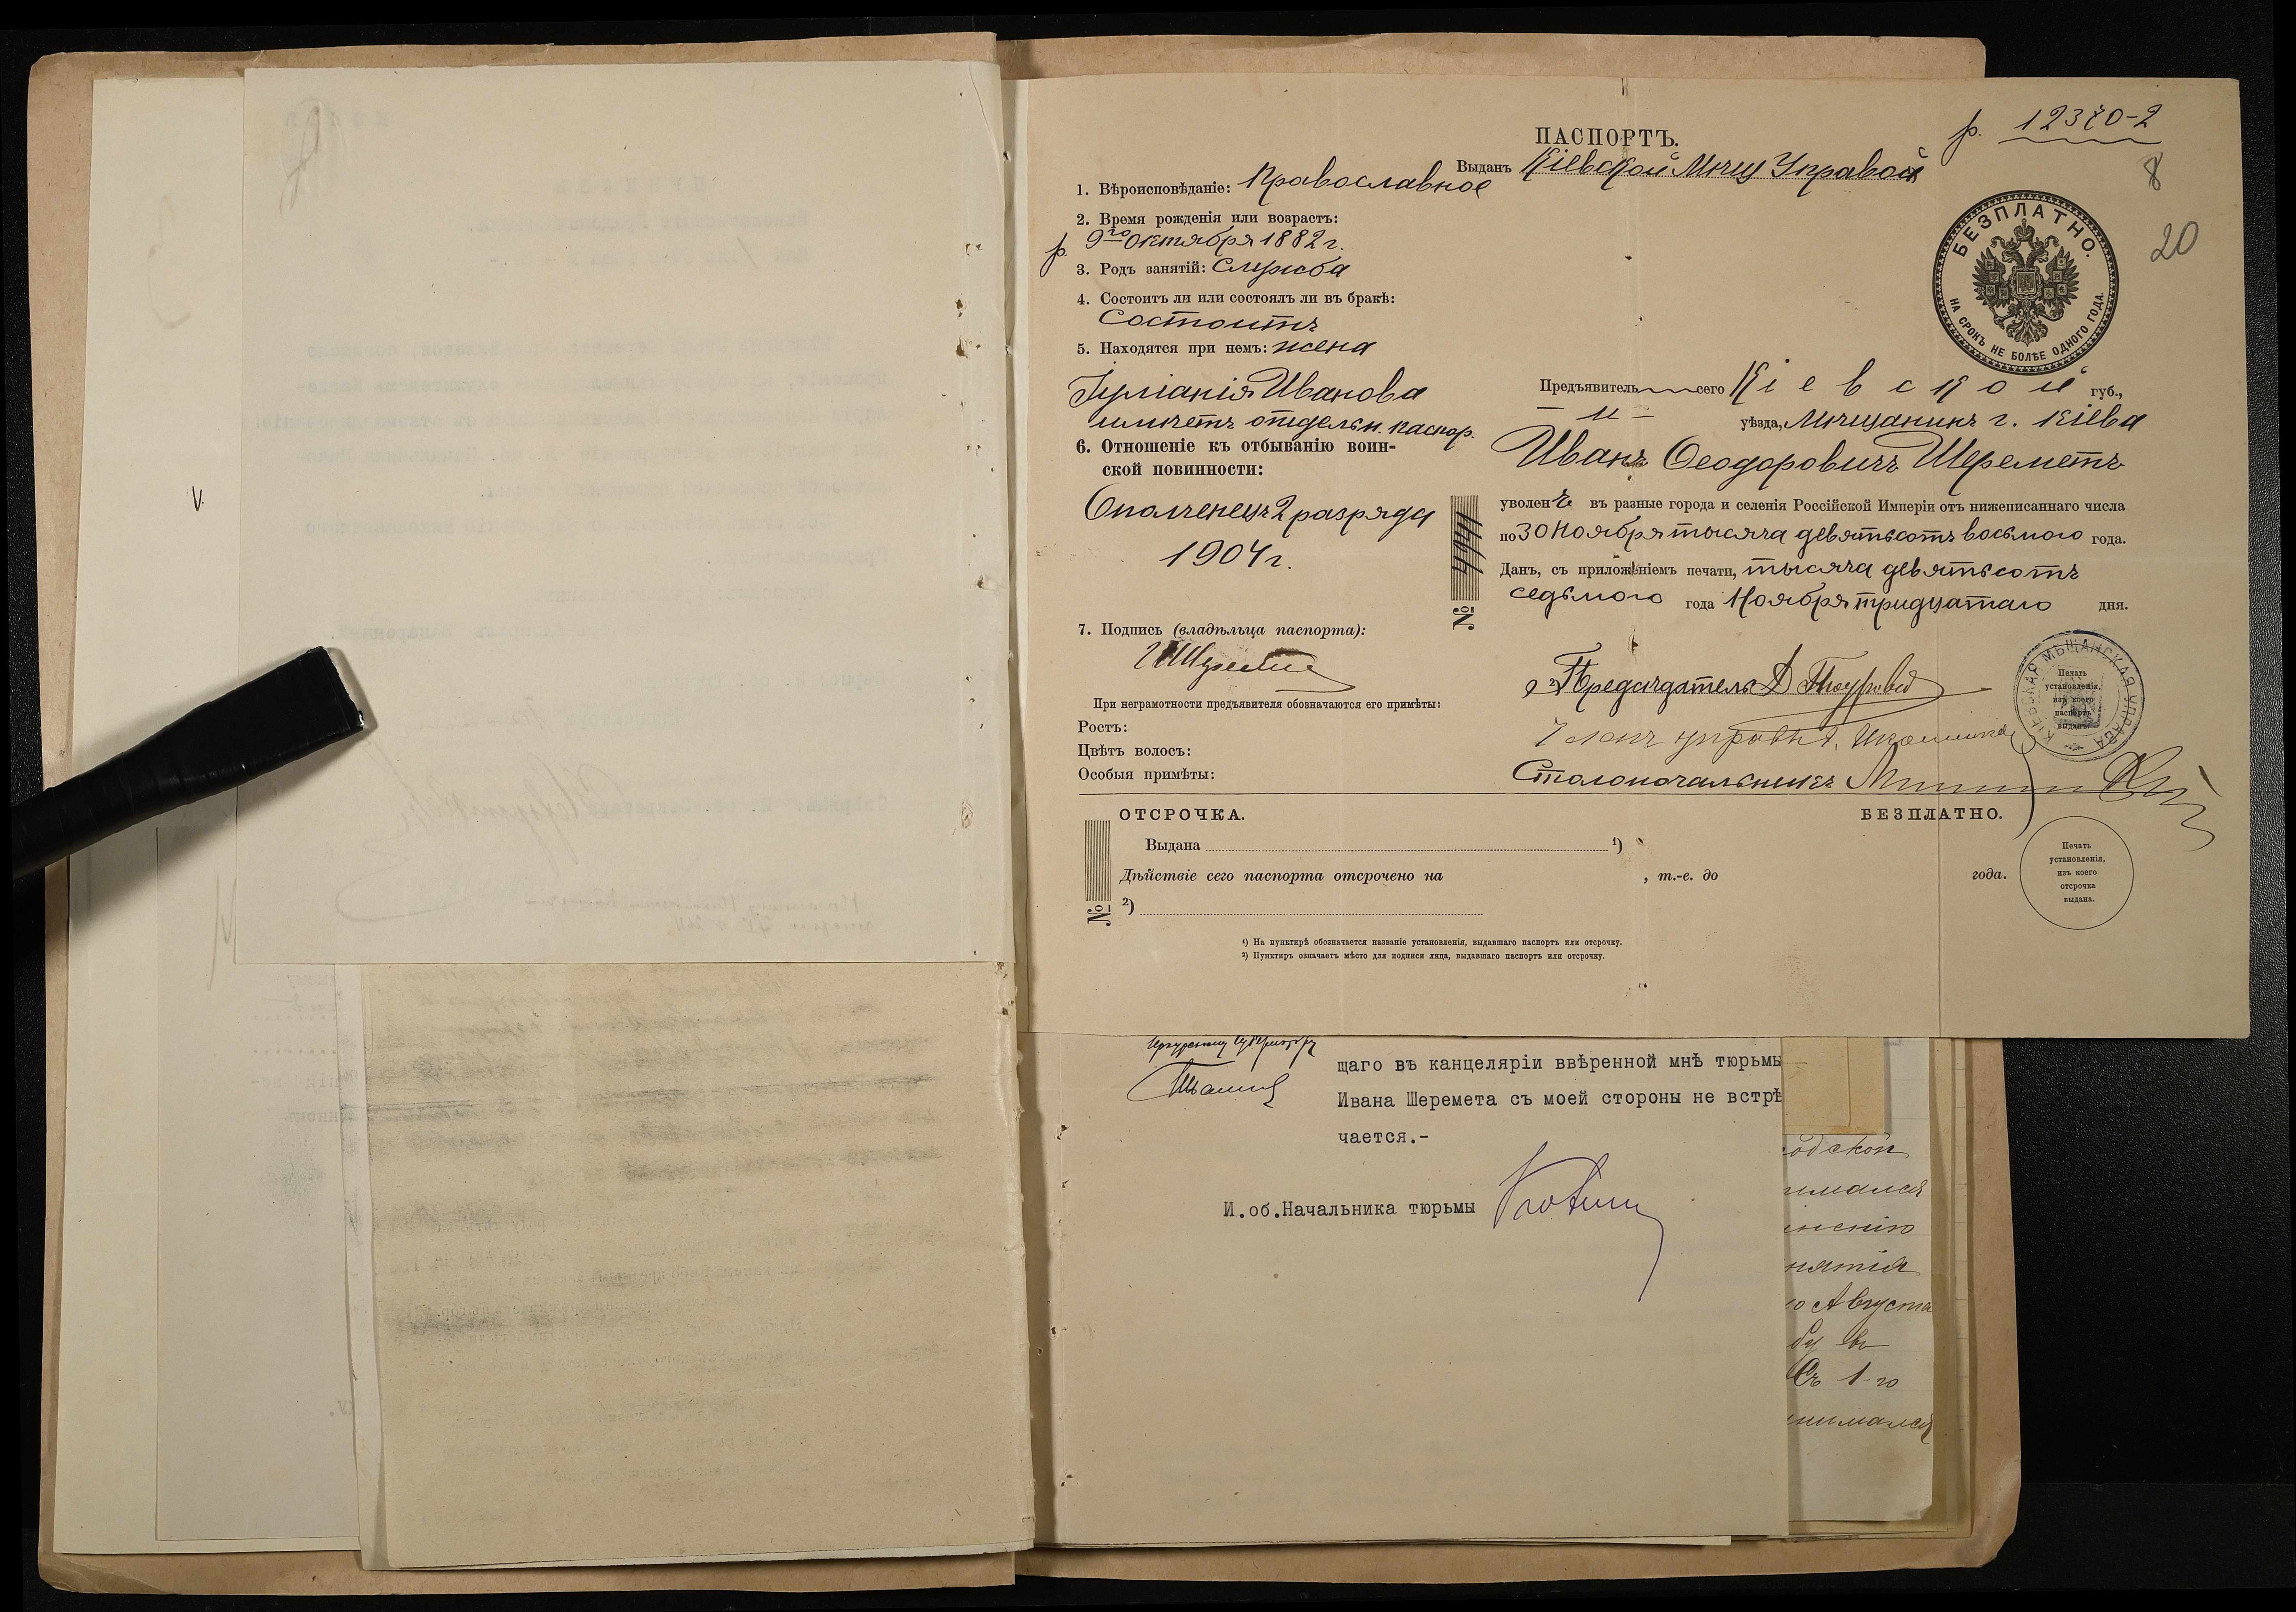 р. 12370-2
8
20
ПАСПОРТЪ.
Выданъ Кіевской Мѣщ Управой
БЕЗПЛАТНО.
НА СРОКЪ НЕ БОЛѢЕ ОДНОГО ГОДА.
1. Вѣроисповѣданіе: Православное
2. Время рожденія или возрастъ:
р. 9го Октября 1882 г.
3. Родъ занятій: Служба
4. Состоитъ ли или состоялъ ли въ бракѣ:
Состоитъ
5. Находятся при немъ: жена
Іуліанія Иванова
имѣетъ отдельн. паспор.
6. Отношеніе къ отбыванію воин-
ской повинности:
Ополченецъ 2 разряда
1904 г.
7. Подпись (владѣльца паспорта):
При неграмотности предъявителя обозначаются его примѣты:
Ростъ:
Цвѣтъ волосъ:
Особыя примѣты:
Предъявитель сего Кіевской губ.,
— " — уѣзда, Мѣщанинъ г. Кіева
Иванъ Ѳеодоровичъ Шереметъ
уволенъ въ разные города и селенія Россійской Имперіи отъ нижеписаннаго числа
по 30 Ноября тысяча девятьсотъ восьмого года.
Данъ, съ приложеніемъ печати, тысяча девятьсотъ
седьмого года Ноября тридцатаго дня.
№ 4941
2) Председатель
Членъ управы
Столоначальникъ
КІЕВСКАЯ МѢЩАНСКАЯ УПРАВА
Печать
установленія,
изъ коего
паспортъ
выданъ.
ОТСРОЧКА.
БЕЗПЛАТНО.
Выдана 1)
Дѣйствіе сего паспорта отсрочено на , т.-е. до года.
№ 2)
Печать
установленія,
изъ коего
отсрочка
выдана.
1) На пунктирѣ обозначается названіе установленія, выдавшаго паспортъ или отсрочку.
2) Пунктиръ означаетъ мѣсто для подписи лица, выдавшаго паспортъ или отсрочку.
щаго въ канцеляріи ввѣренной мнѣ тюрьмы
Ивана Шеремета съ моей стороны не встрѣ
чается.-
И.об.Начальника тюрьмы
Августа
Съ 1-го
V.